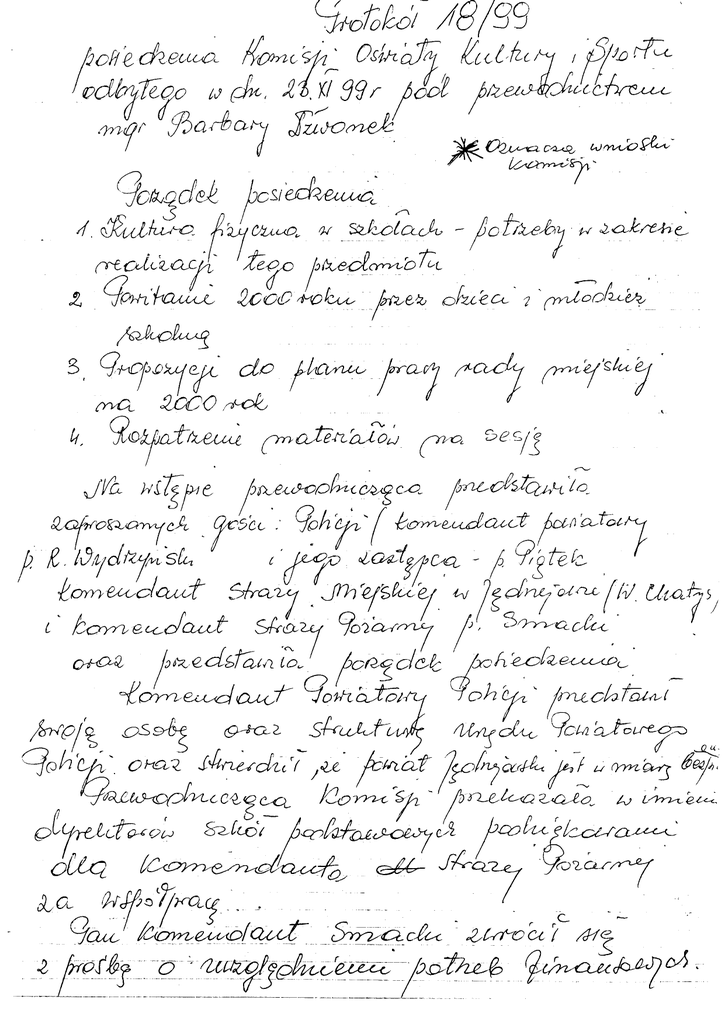 Protokół 18/99
posiedzenia Komisji Oświaty Kultury i Sportu
odbytego w dn. 23.XI 99r pod przewodnictwem
mgr Barbary Dzwonek
* Oznacza wnioski
komisji
Porządek posiedzenia
1. Kultura fizyczna w szkołach - potrzeby w zakresie
realizacji tego przedmiotu
2. Powitanie 2000 roku przez dzieci i młodzież
szkolną
3. Propozycji do planu pracy rady miejskiej
na 2000 rok
4. Rozpatrzenie materiałów na sesję
Na wstępie przewodnicząca przedstawiła
zaproszonych gości: Policji / komendant powiatowy
p. R. Wydrzyński i jego zastępca - p. Piątek
komendant straży Miejskiej w Jędrzejowie /W.
i komendant straży Pożarnej p. Smacki
oraz przedstawiła porządek posiedzenia
Komendant Powiatowy Policji przedstawił
swoją osobę oraz strukturę Urzędu Powiatowego
Policji oraz stwierdził, że powiat Jędrzejowski jest w miarę
Przewodnicząca Komisji przekazała w imieniu
dyrektorów szkół podstawowych podziękowanie
dla komendanta straży Pożarnej
za współpracę
Pan komendant Smacki zwrócił się
z prośbą o uwzględnienie potrzeb finansowych.